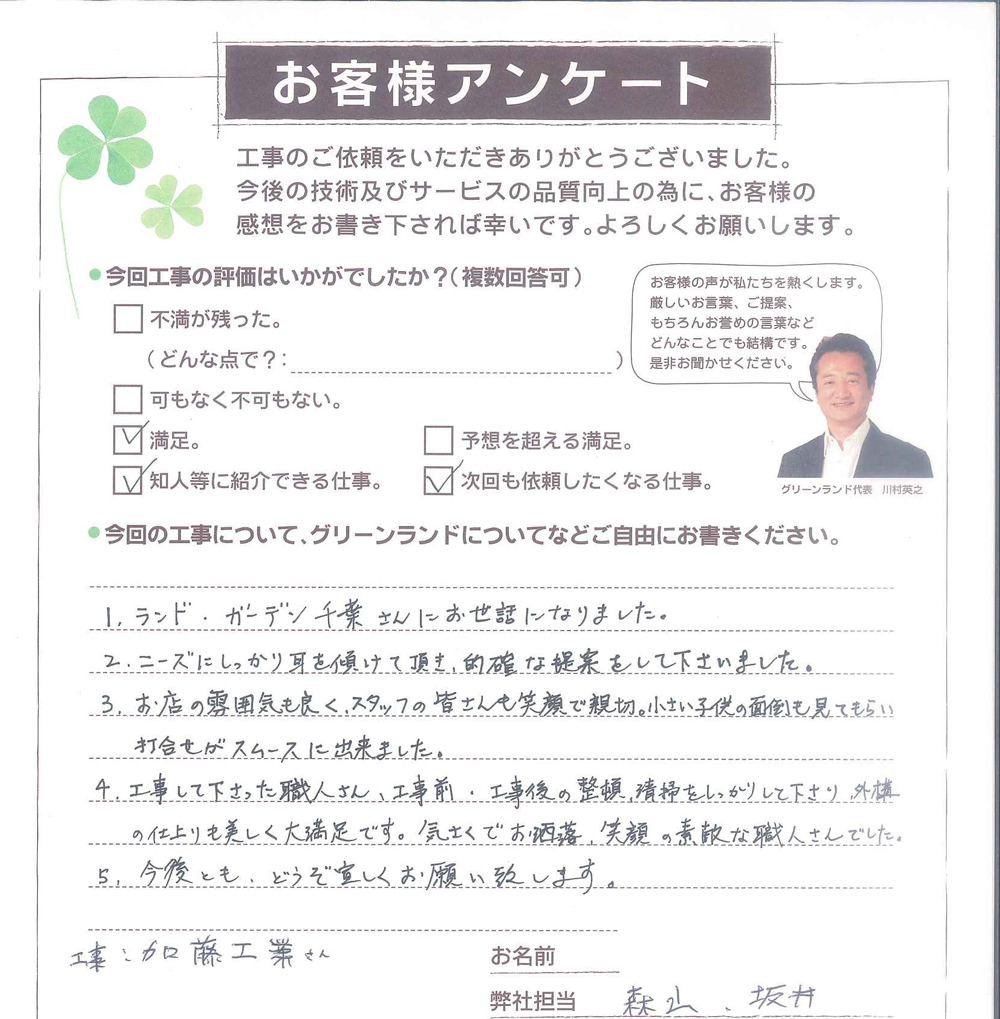 お客様アンケート
工事のご依頼をいただきありがとうございました。
今後の技術及びサービスの品質向上の為に、お客様の
感想をお書き下されば幸いです。よろしくお願いします。
●今回工事の評価はいかがでしたか？（複数回答可）
お客様の声が私たちを熱くします。
厳しいお言葉、ご提案、
もちろんお誉めの言葉など
どんなことでも結構です。
是非お聞かせください。
グリーンランド代表 川村英之
不満が残った。
（どんな点で？： ）
可もなく不可もない。
満足。 予想を超える満足。
知人等に紹介できる仕事。 次回も依頼したくなる仕事。
●今回の工事について、グリーンランドについてなどご自由にお書きください。
1. ランド・ガーデン千葉さんにお世話になりました。
2. ニーズにしっかり耳を傾けて頂き、的確な提案をして下さいました。
3. お店の雰囲気も良く、スタッフの皆さんも笑顔で親切。小さい子供の面倒も見てもらい
打合せがスムースに出来ました。
4. 工事して下さった職人さん、工事前・工事後の整頓、清掃をしっかりして下さり、外構
の仕上りも美しく大満足です。気さくでお洒落、笑顔の素敵な職人さんでした。
5. 今後とも、どうぞ宜しくお願い致します。
工事：加藤工業さん
お名前
弊社担当 森山、坂井